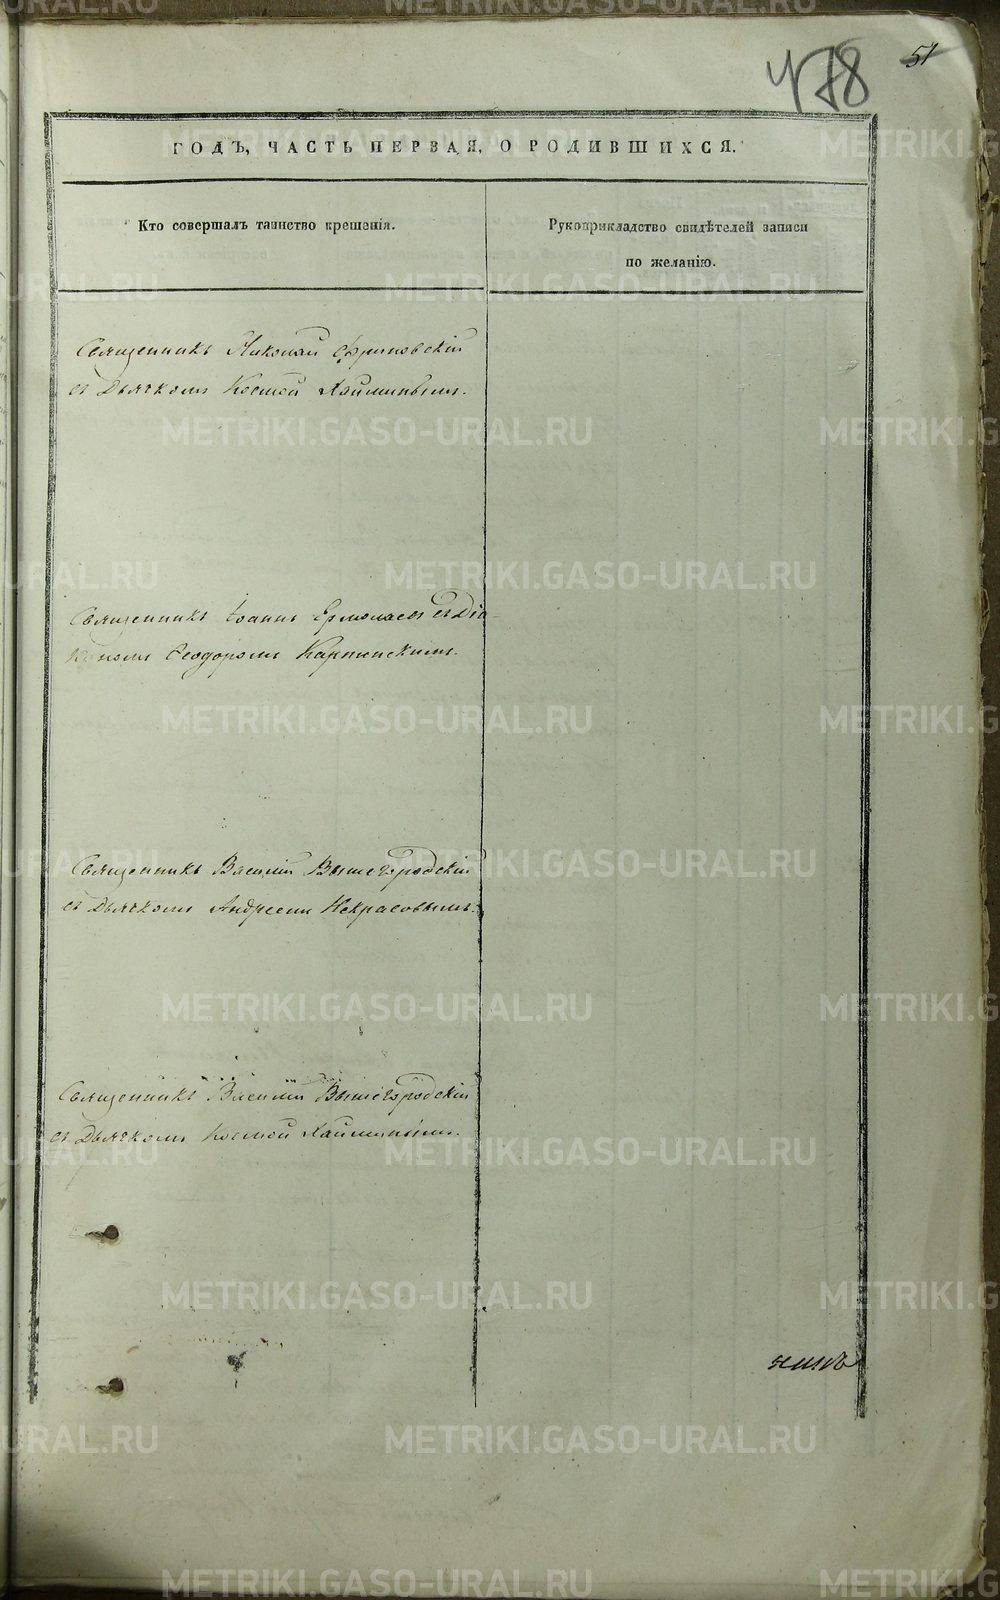 478
51
ГОДЪ, ЧАСТЬ ПЕРВАЯ, О РОДИВШИХСЯ.
Кто совершалъ таинство крещенія.
Рукоприкладство свидѣтелей записи
по желанію.
Священникъ Николай Фриновскій
съ Дьячкомъ Космой Хайминымъ.
Священникъ Іоаннъ Ермолаевъ съ Діа-
кономъ Феодоромъ Карпинскимъ.
Священникъ Василій Вышегородскій
съ Дьячкомъ Андреемъ Некрасовымъ.
Священникъ Василій Вышегородскій
съ Дьячкомъ Космой Хайминымъ.
METRIKI.GASO-URAL.RU